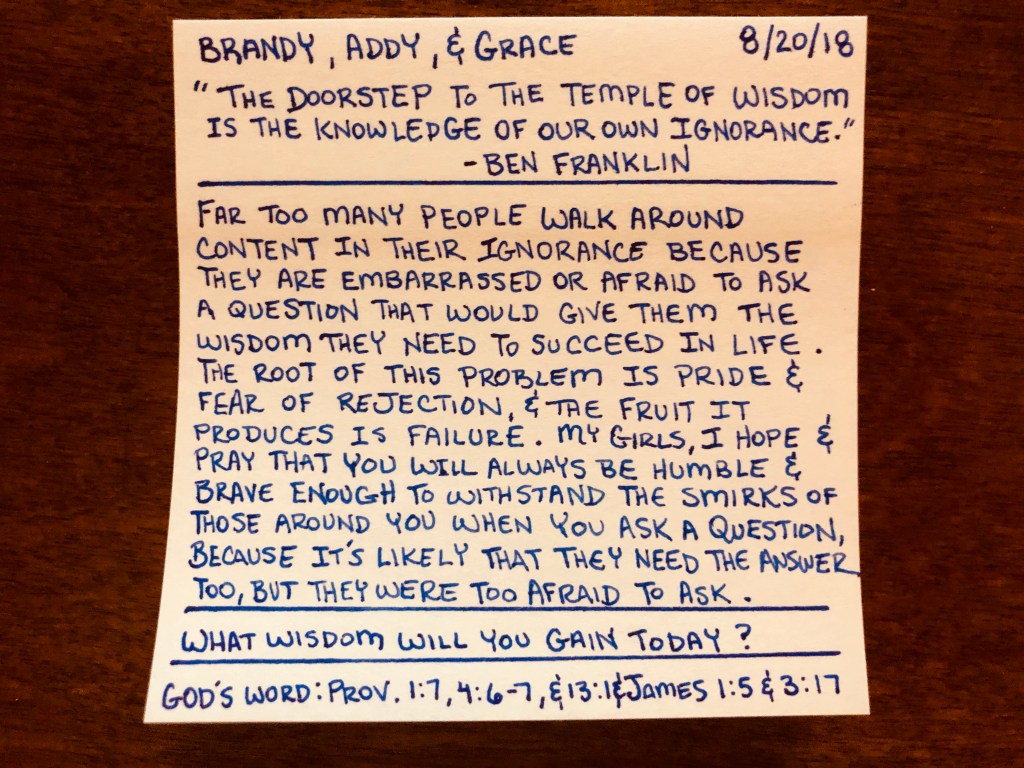 BRANDY, ADDY, & GRACE 8/20/18
"THE DOORSTEP TO THE TEMPLE OF WISDOM
IS THE KNOWLEDGE OF OUR OWN IGNORANCE."
-BEN FRANKLIN
FAR TOO MANY PEOPLE WALK AROUND
CONTENT IN THEIR IGNORANCE BECAUSE
THEY ARE EMBARRASSED OR AFRAID TO ASK
A QUESTION THAT WOULD GIVE THEM THE
WISDOM THEY NEED TO SUCCEED IN LIFE.
THE ROOT OF THIS PROBLEM IS PRIDE &
FEAR OF REJECTION, & THE FRUIT IT
PRODUCES IS FAILURE. MY GIRLS, I HOPE &
PRAY THAT YOU WILL ALWAYS BE HUMBLE &
BRAVE ENOUGH TO WITHSTAND THE SMIRKS OF
THOSE AROUND YOU WHEN YOU ASK A QUESTION,
BECAUSE IT'S LIKELY THAT THEY NEED THE ANSWER
TOO, BUT THEY WERE TOO AFRAID TO ASK.
WHAT WISDOM WILL YOU GAIN TODAY?
GOD'S WORD: PROV. 1:7, 4:6-7, & 13:1 & JAMES 1:5 & 3:17